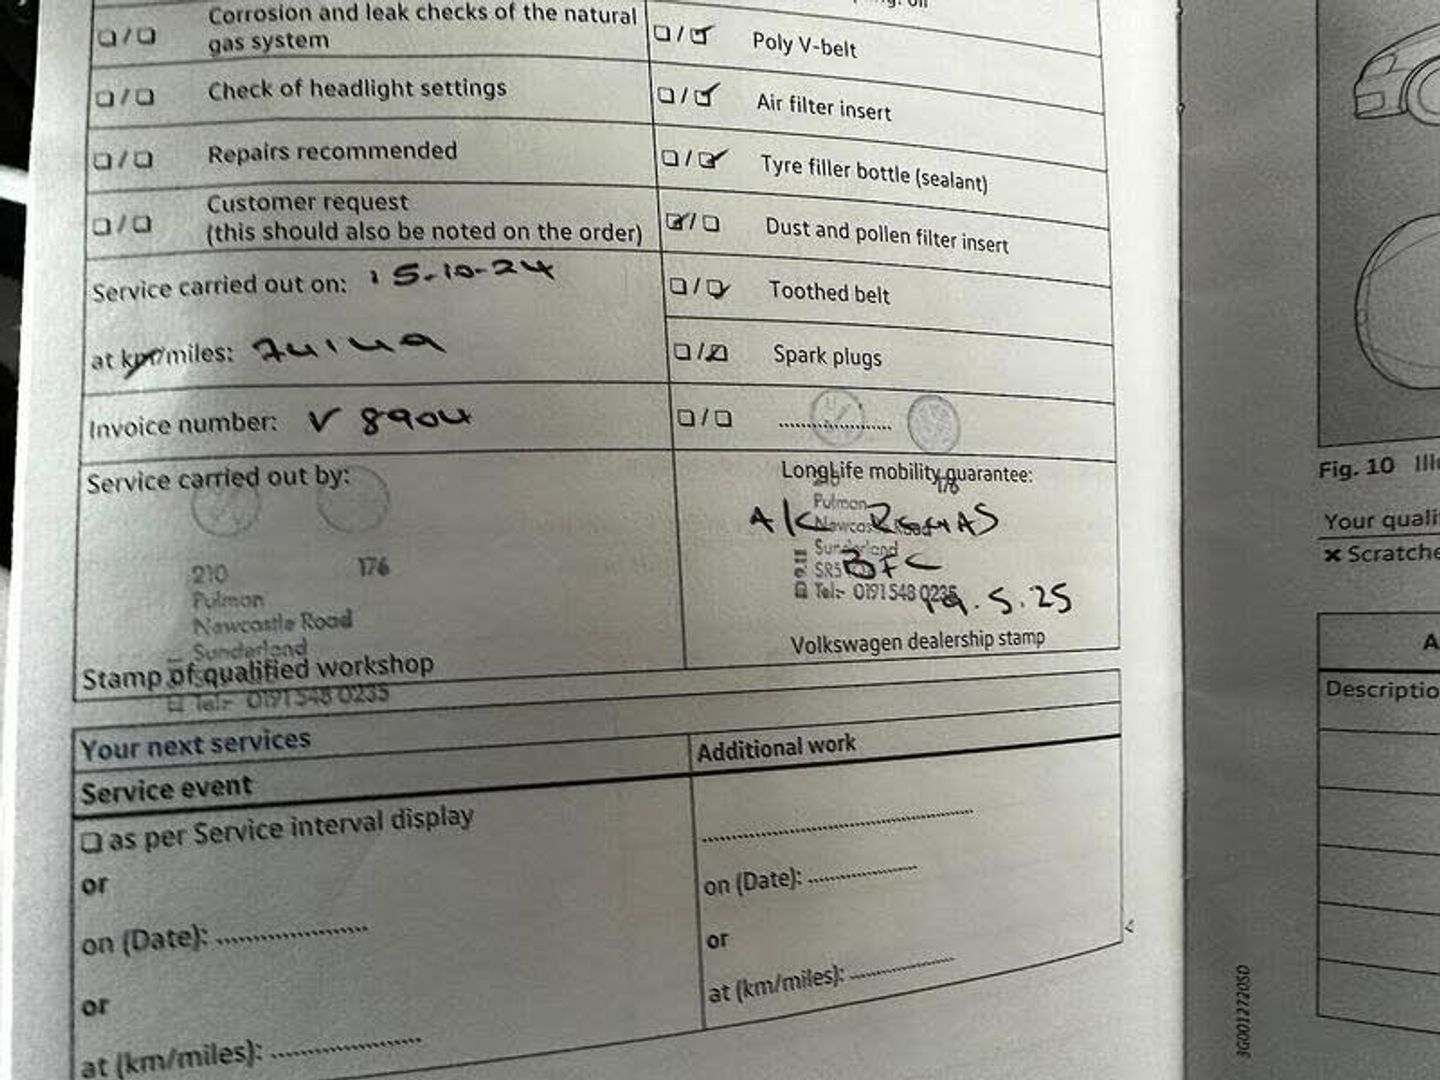 Corrosion and leak checks of the natural
gas system
Poly V-belt
Check of headlight settings
Air filter insert
Repairs recommended
Tyre filler bottle (sealant)
Customer request
(this should also be noted on the order)
Dust and pollen filter insert
Service carried out on: 15-10-24
Toothed belt
at km/miles:
Spark plugs
Invoice number: V 8904
....................
Service carried out by:
210 176
Pulman
Newcastle Road
Sunderland
Tel:- 0191 548 0235
Stamp of qualified workshop
LongLife mobility guarantee:
176
Pulman
A/C REGAS
Sunderland
SR5
Tel:- 0191 548 0235
19.5.25
Volkswagen dealership stamp
Your next services
Service event
Additional work
as per Service interval display
or
on (Date): ....................
or
at (km/miles): ....................
on (Date): ....................
or
at (km/miles): ....................
3G0012720SD
Fig. 10
Your quali
× Scratche
A
Descriptio